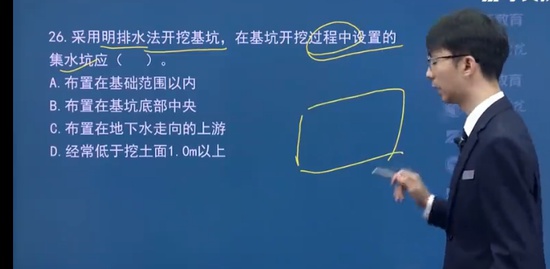 教育
26. 采用明排水法开挖基坑，在基坑开挖过程中设置的
集水坑应（　）。
A. 布置在基础范围以内
B. 布置在基坑底部中央
C. 布置在地下水走向的上游
D. 经常低于挖土面1.0m以上
教育